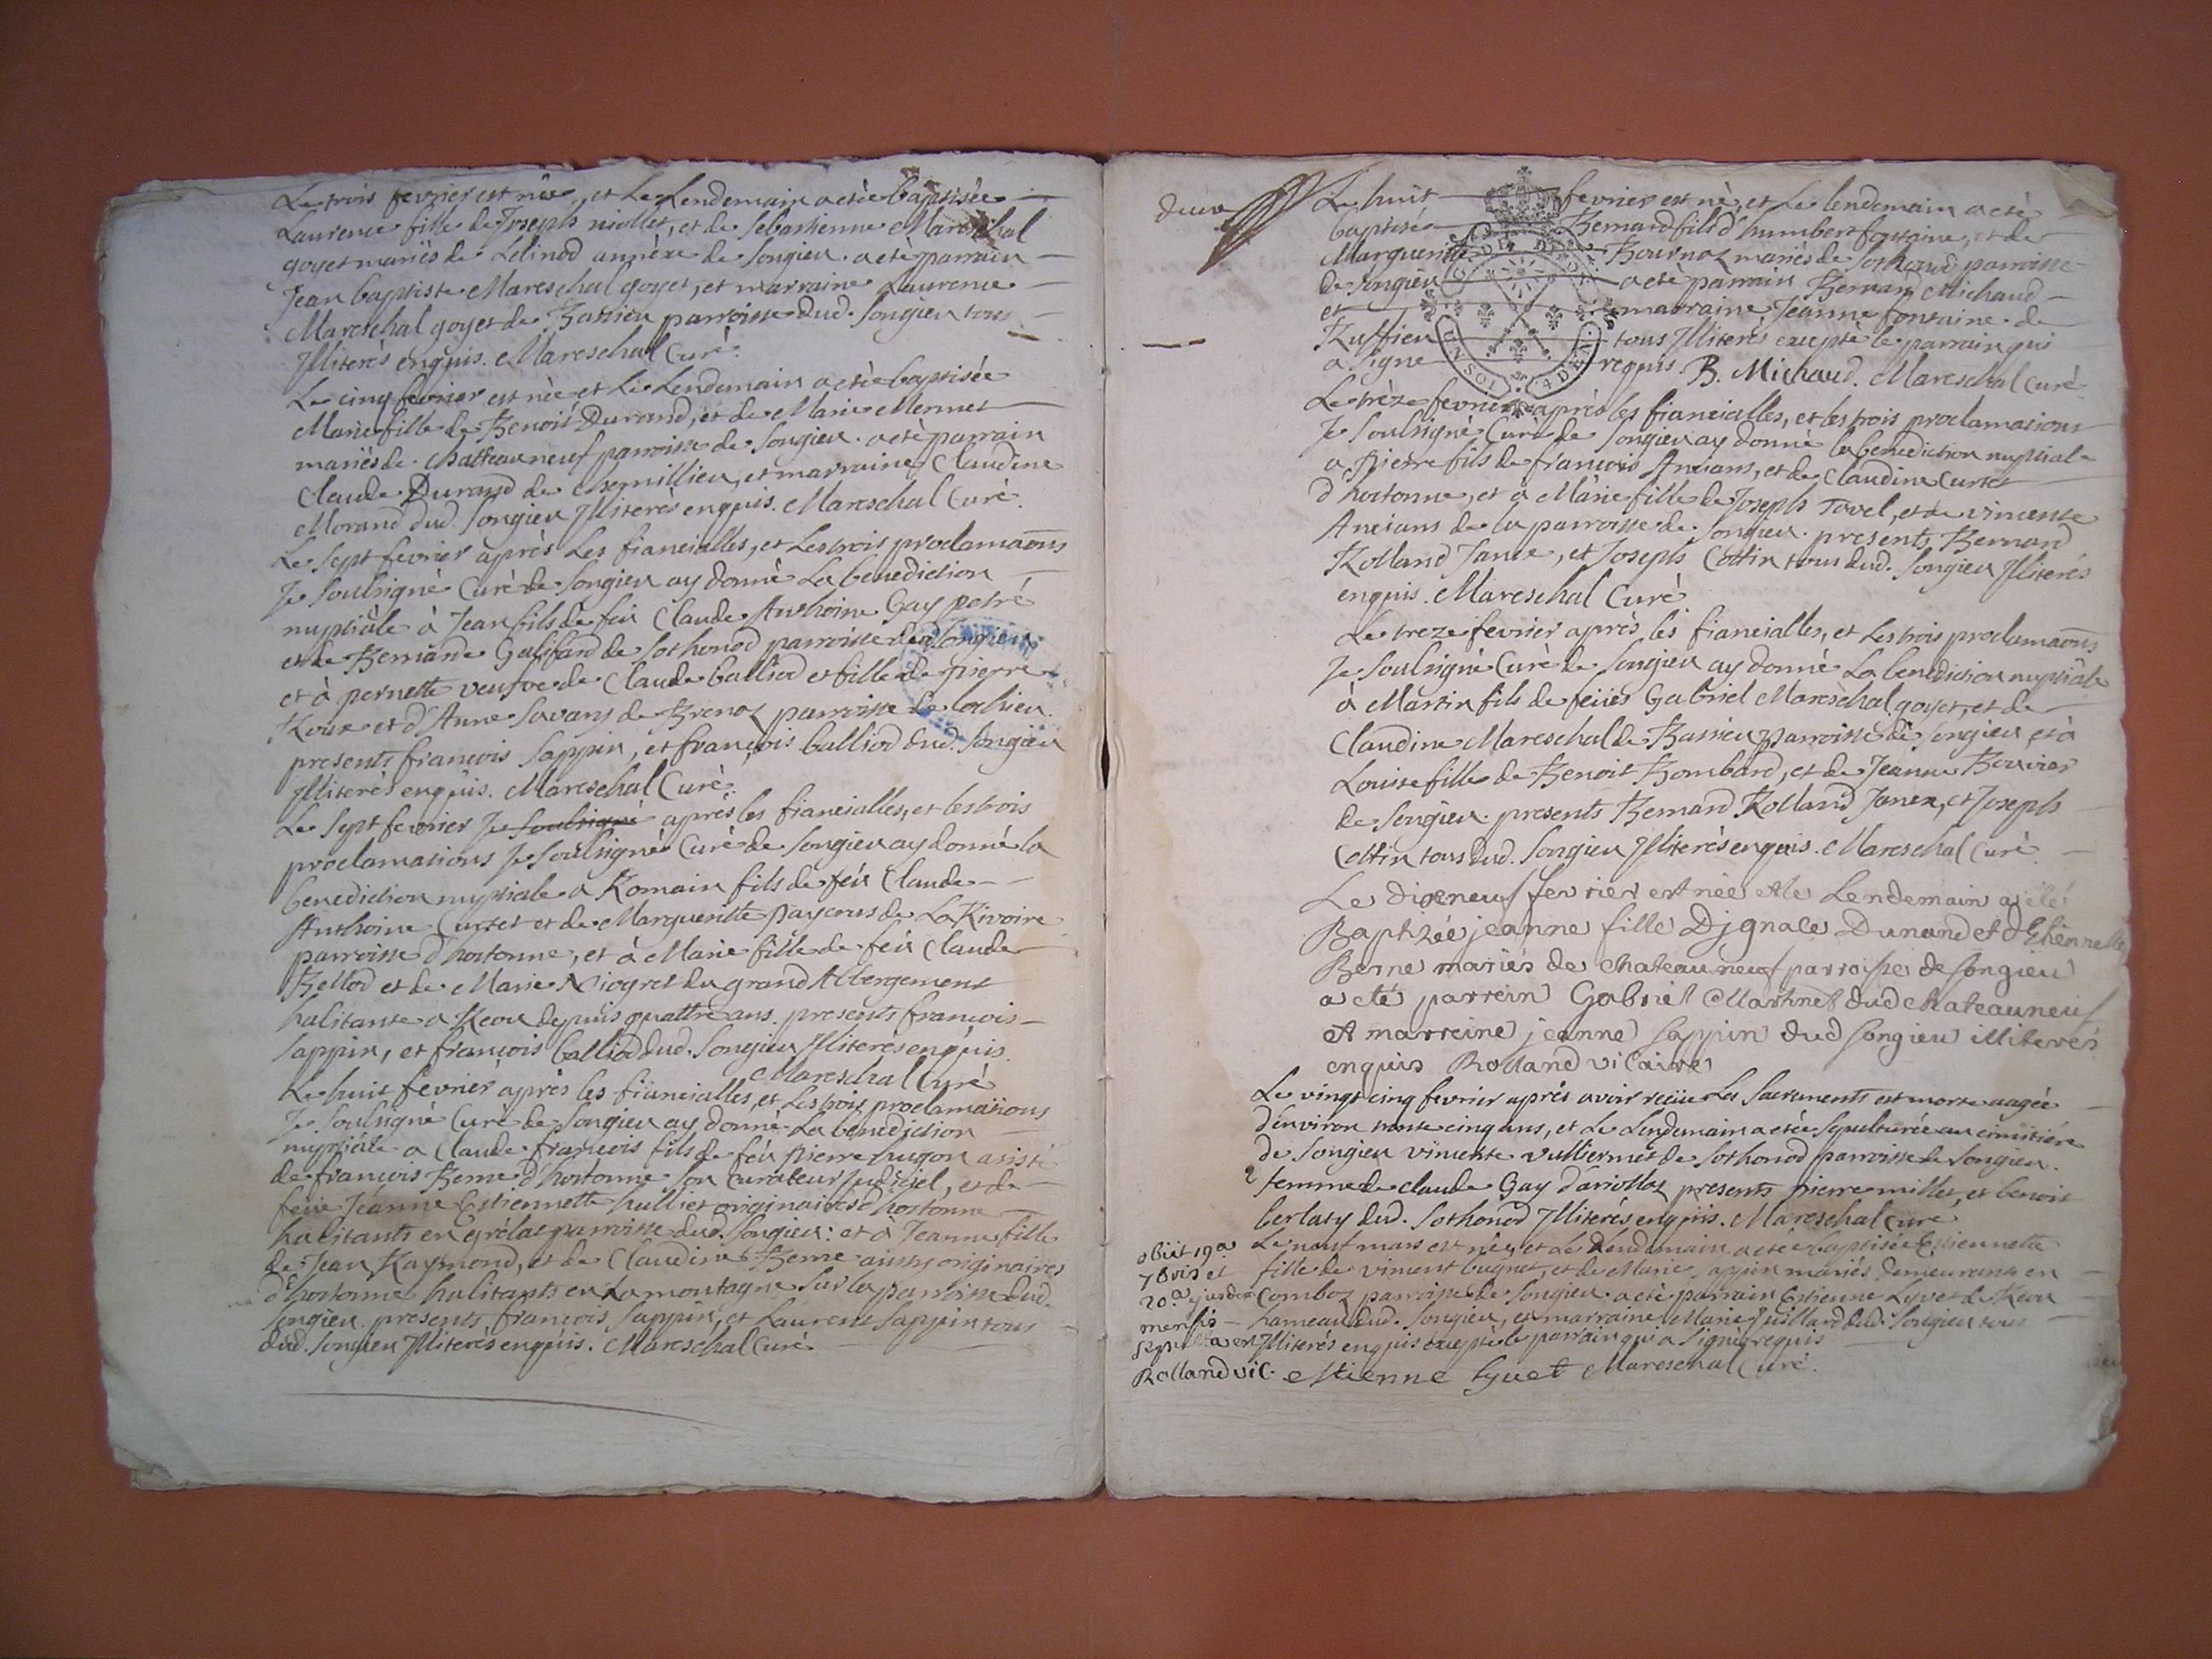 Le trois fevrier est née, et Le Lendemain a etè baptisée
Laurence fille de Joseph niollet, et de Sebastienne Mareschal
goyet mariès de Lelinod annèxe de Songieu. a etè parrain
Jean baptiste Mareschal goyet, et marraine Laurence
Mareschal goyet de Bassieu parroisse dud. Songieu tous
Illiterès enquis. Mareschal Curè.
Le cinq fevrier est nèe et Le Lendemain a etèe baptisée
Marie fille de Benoit Durand, et de Marie Mermet
mariès de chatteauneuf parroisse de Songieu. a etè parrain
Claude Durand de chemillieu, et marraine Claudine
Morand dud. Songieu Illiterès enquis. Mareschal Curè.
Le Sept fevrier après Les fianciailles, et Les trois proclamaons
Je Soulsignè Curè de Songieu ay donnè La benediction
nuptiale à Jean fils de feu Claude Anthoine Gay
et de Bernarde Galifard de Sothonod parroisse dud. Songieu
et à pernette veufve de Claude balliod et fille de pierre
Roux et d'Anne Savary de Brenoz parroisse de Lochieu.
presents francois Sappin, et francois balliod dud. Songieu
Illiterès enquis. Mareschal Curè.
Le Sept fevrier Je Soulsigné après les fiancialles, et les trois
proclamations Je Soulsignè Curè de Songieu ay donnè la
benediction nuptiale a Romain fils de feu Claude
Anthoine Curtet et de Margueritte payerus de La Rivoire
parroisse d'hortonne, et à Marie fille de feu Claude
Bellod et de Marie Niogret du grand Abergement
habitante a Reou depuis quattre ans. presents francois
Sappin, et francois balliod dud. Songieu Illiterès enquis.
Mareschal Curè
Le huit fevrier après les fiancialles, et Les trois proclamations
Je Soulsignè Curè de Songieu ay donnè La benediction
nuptiale a Claude francois fils de feu pierre hugon asistè
de francois Berne d'hortonne son Curateur judiciel, et de
feüe Jeanne Estiennette hulliet originaires d'hortonne
habitants en grélat parroisse dud. Songieu: et à Jeanne fille
de Jean Raymond, et de Claudine Berne aussy originaires
d'hortonne habitants en La montagne Sur la parroisse dud.
Songieu. presents francois Sappin, et Laurent Sappin tous
dud. Songieu Illiterès enquis. Mareschal Curè
Le huit fevrier est nè, et Le lendemain a etè
baptisè Bernard fils d'humbert fontaine, et de
Marguerite Bournoz mariès de Sothonod parroisse
de Songieu a etè parrain Bernard Michaud
et marraine Jeanne fontaine de
Ruffieu tous Illiterès exceptè le parrain qui
a Signè requis B. Michaud. Mareschal Curè
Le trèze fevrier après les fiancialles, et les trois proclamations
Je Soulsignè Curè de Songieu ay donnè la benediction nuptiale
a pierre fils de francois Ancians, et de Claudine Curtet
d'hortonne, et à Marie fille de Joseph Tavel, et de vincente
Ancians de la parroisse de Songieu. presents Bernard
Rolland Janex, et Joseph Cottin tous dud. Songieu Illiterès
enquis. Mareschal Curè
Le treze fevrier après les fiancialles, et Les trois proclamaons
Je Soulsignè Curè de Songieu ay donnè La benediction nuptiale
à Martin fils de feües Gabriel Mareschal goyet, et de
Claudine Mareschal de Bassieu parroisse de Songieu, et à
Louise fille de Benoit Bombard, et de Jeanne Bouvier
de Songieu. presents Bernard Rolland Janex, et Joseph
Cottin tous dud. Songieu Illiterès enquis. Mareschal Curè.
Le dixneuf fevrier est née et le Lendemain a été
Baptizée jeanne fille Djgnace Dunand et d'Ethiennette
Berne mariés de chateauneuf parroisse de songieu
a eté parrein Gabriel Martinet dud chateauneuf
et marreine jeanne sappin dud songieu illiterés
enquis Rolland vicaire
Le vingt cinq fevrier après avoir reçüe Les Sacrements est morte aagée
d'environ trente cinq ans, et Le Lendemain a etèe Sepulturée au cimitière
de Songieu vincente vulliermet de Sothonod parroisse de Songieu.
femme de claude Gay d'arvillaz presents pierre millet, et benoit
berlaty dud. Sothonod Illiterés enquis. Mareschal Curé
Le neuf mars est née, et Le Lendemain a etée baptisée Estiennette
fille de vincent bugnet, et de Marie Sappin mariés demeurants en
Comboz parroisse de Songieu. a etè parrain Estienne Lyvet de Reou
hameau dud. Songieu, et marraine Marie Juillard dud. Songieu tous
Illiterés enquis exceptè le parrain qui a Signè requis
estienne lyuet Mareschal Curé.
obiit 19a
7bris et
20a ejusdem
mensis
Rolland vic.